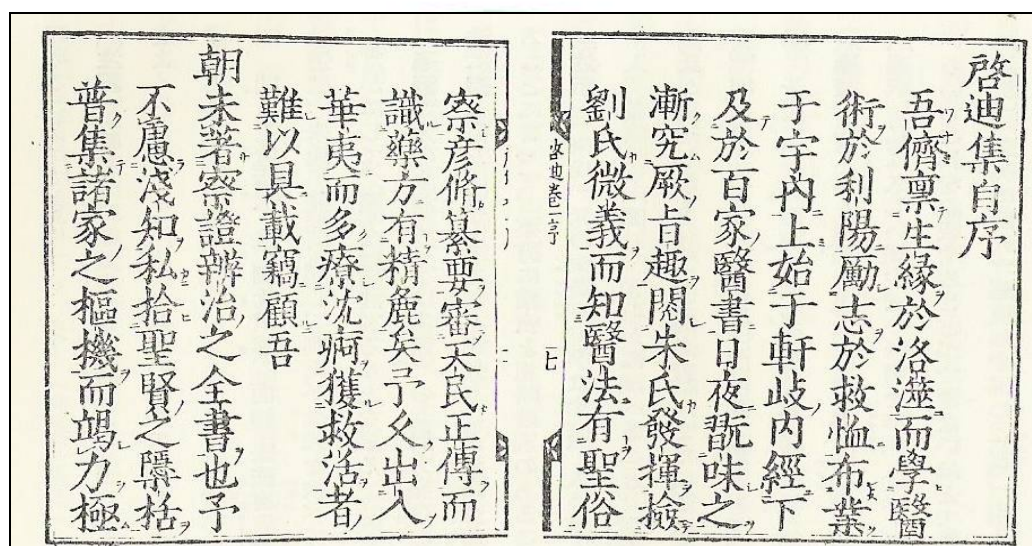 啓迪集自序
吾儕禀生縁於洛澨而學醫
術於利陽勵志於救恤布業
于宇内上始于軒岐内經下
及於百家醫書日夜翫味之
漸究厥旨趣閲朱氏發揮撿
劉氏微義而知醫法有聖俗
啓迪卷一序
七
察彦脩纂要審天民正傳而
識藥方有精麁矣予久出入
華夷而多療沈痾獲救活者
難以具載竊顧吾
朝未著察證辨治之全書也予
不慮淺知私拾聖賢之隱栝
普集諸家之樞機而竭力極